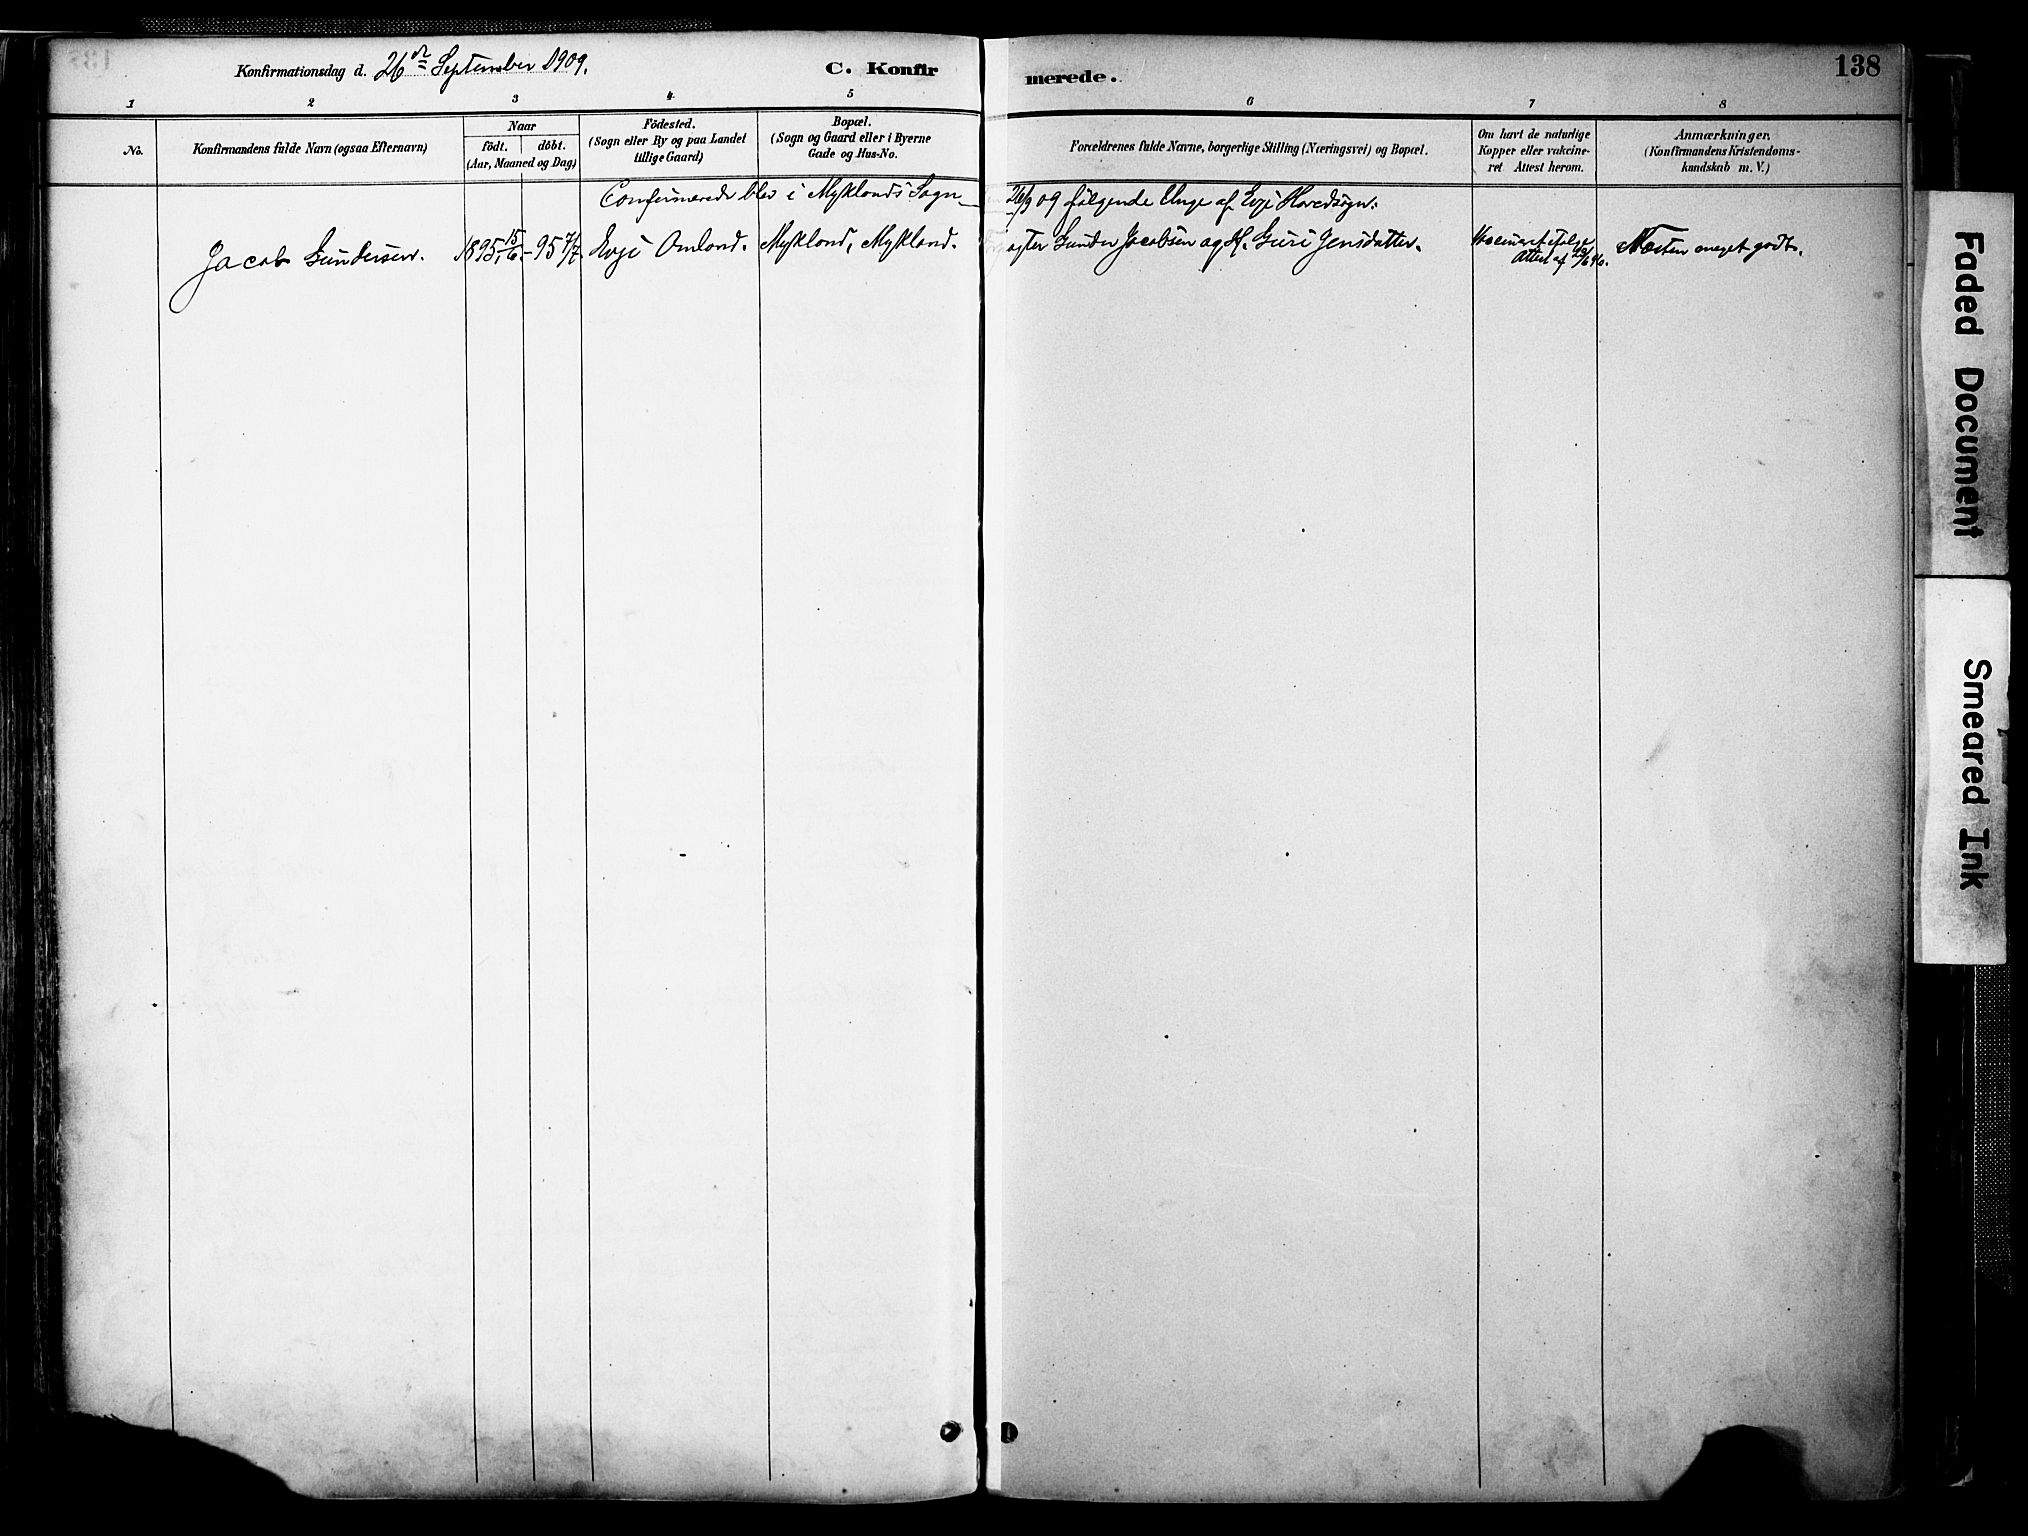 Konfirmationsdag d. 26de September 1909.
C. Konfirmerede.
138
1 2 3 4 5 6 7 8
No.
Konfirmandens fulde Navn (ogsaa Efternavn)
Naar
födt. döbt.
(Aar, Maaned og Dag)
Födested.
(Sogn eller By og paa Landet
tillige Gaard)
Bopæl.
(Sogn og Gaard eller i Byerne
Gade og Hus-No.
Forældrenes fulde Navne, borgerlige Stilling (Næringsvei) og Bopæl.
Om havt de naturlige
Kopper eller vakcine-
ret Attest herom.
Anmærkninger.
(Konfirmandens Kristendoms-
kundskab m. V.)
Confirmerede blev i Myklands Sogn 26/9 09 følgende Unge af Evje Hovedsogn:
Jacob Gundersen. 1895 15/6. -95 7/7 Evje Omland. Mykland, Mykland. Gunder Jacobsen og H. Guri Jensdatter. Næsten meget godt.
Attest af
Faded Document
Smeared Ink